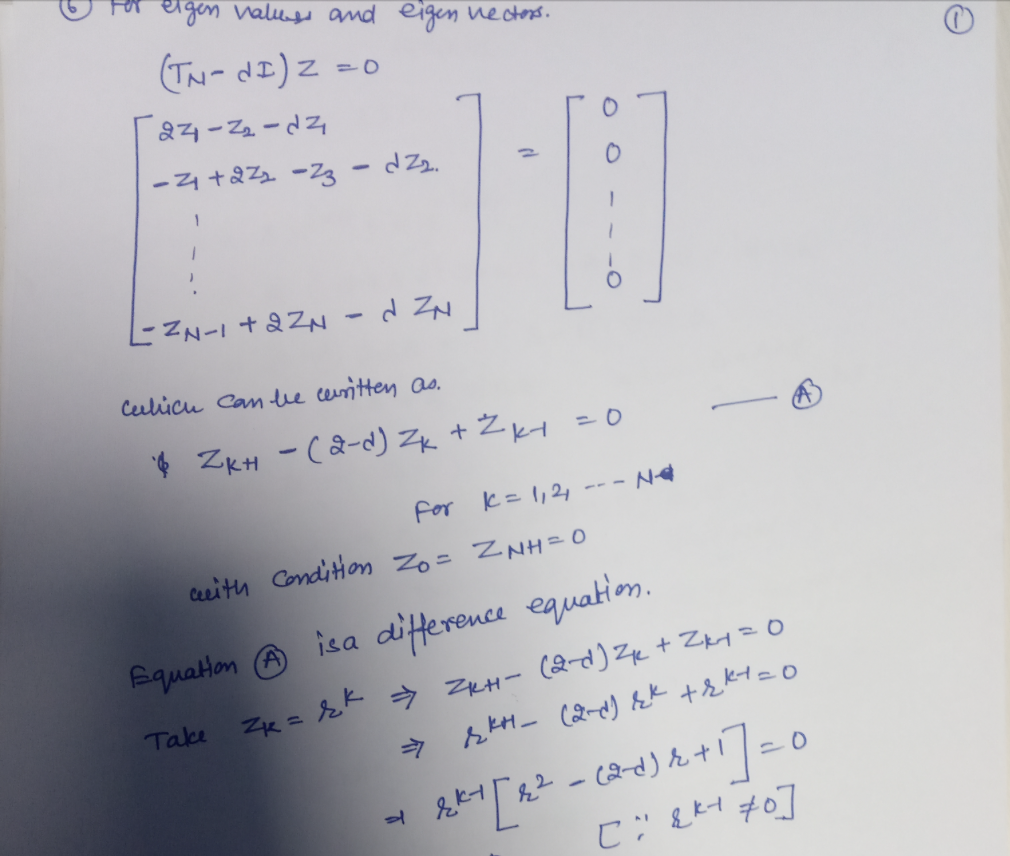 ⑥ For eigen values and eigen vectors. ①
(T_N - dI) Z = 0
[2z_1 - z_2 - dz_1
-z_1 + 2z_2 - z_3 - dz_2.
⋮
-z_{N-1} + 2z_N - d z_N] = [0
0
⋮
0]
which can be written as.
z_{k+1} - (2-d) z_k + z_{k-1} = 0 — Ⓐ
For k = 1, 2, --- N
with condition z_0 = z_{N+1} = 0
Equation Ⓐ is a difference equation.
Take z_k = r^k ⇒ z_{k+1} - (2-d) z_k + z_{k-1} = 0
⇒ r^{k+1} - (2-d) r^k + r^{k-1} = 0
⇒ r^{k-1} [r^2 - (2-d) r + 1] = 0
[∵ r^{k-1} ≠ 0]